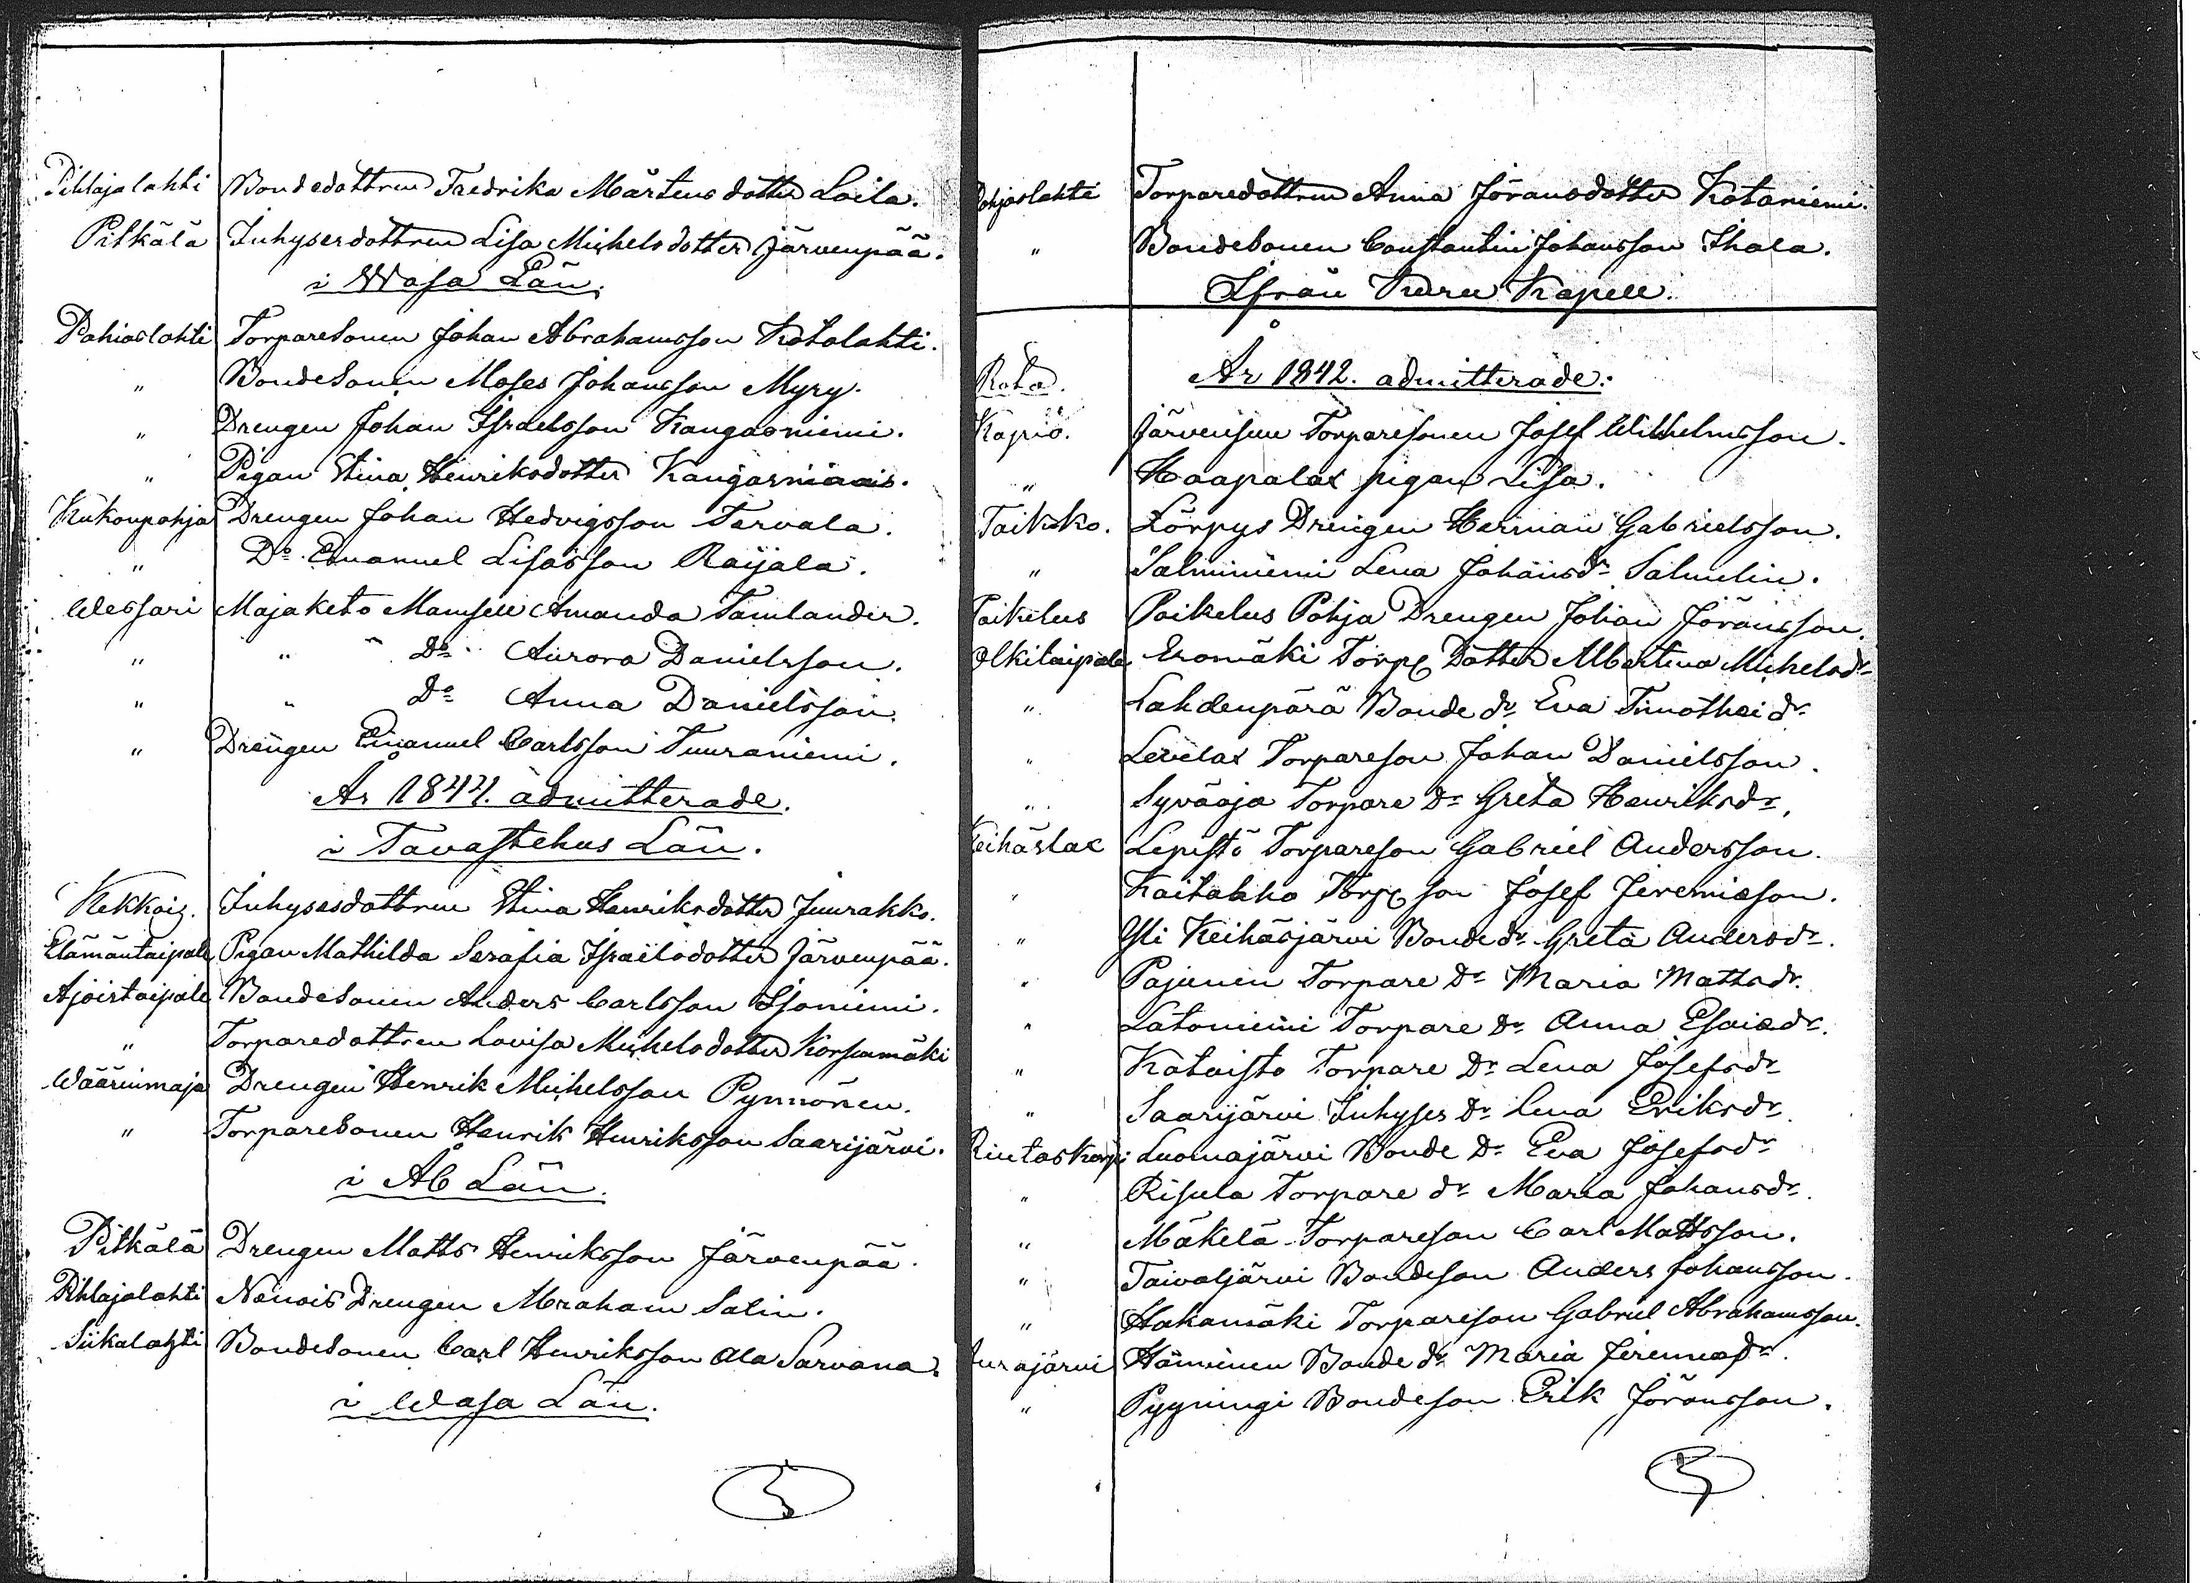 Pihlajalahti Bondedottren Fredrika Mårtensdotter Loila.
Pitkälä Inhysesdottren Lisa Michelsdotter Järvenpää.
i Wasa Län.
Pohioslahti Torparesonen Johan Abrahamsson Kotolahti.
" Bondesonen Moses Johansson Myry.
" Drengen Johan Israelsson Kangasniemi.
" Pigan Stina Henriksdotter
Kukonpohja Drengen Johan Hedvigsson Tervala.
" Do Emanuel Lisasson Raijala.
Wessari Majaketo Mamsell Amanda Tamlander.
" " Do Aurora Danielsson.
" " Do Anna Danielsson.
" Drengen Emanuel Carlsson Tuuraniemi.
År 1844. admitterade.
i Tavastehus Län.
Kekkois. Inhysesdottren Stina Henriksdotter Juurakko.
Elämäntaipale Pigan Mathilda Serafia Israelsdotter Järvenpää.
Ajoistaipale Bondesonen Anders Carlsson Isoniemi.
" Torparedottren Lovisa Michelsdotter Korpimäki
Wäärinmaja Drengen Henrik Michelsson Pynnönen.
" Torparesonen Henrik Henriksson Saarijärvi.
i Åb Län.
Pitkälä Drengen Matts Henriksson Järvenpää.
Pihlajalahti Nenois Drengen Abraham Salin.
Siikalahti Bondesonen Carl Henriksson Ala Sarvana.
i Wasa Län.
Pohjoslahti Torparedottren Anna Jöransdotter Kotaniemi.
" Bondesonen Constantin Johansson Ihala.
Ifrån Kuru Kapell.
Rota. År 1842. admitterade:
Kapio. Järvensuu Torparesonen Josef Wilhelmsson.
" Haapalax pigan Lisa.
Toikko. Lörpys Drengen Herman Gabrielsson.
" Salminiemi Lena Johansdr Salmelin.
Poikelus Poikelus Pohja Drengen Johan Jöransson.
Olkitaipale Eromäki Torp. Dotter Albertina Michelsdr
" Lahdenpärä Bonde dr Eva Timotheidr
" Levelax Torpareson Johan Danielsson.
" Syväoja Torpare Dr Greta Henriksdr.
Keihäslax Lepistö Torpareson Gabriel Andersson.
" Kaitakko Torp. son Josef Jeremiasson.
" Yli Keihäsjärvi Bonde dr Greta Andersdr.
" Pajunen Torpare Dr Maria Mattsdr.
" Latoniemi Torpare Dr Anna Esaiædr.
" Kataisto Torpare Dr Lena Josefsdr
" Saarijärvi Inhyses Dr Lena Eriksdr
Riutaskorpi Luomajärvi Bonde Dr Eva Josefsdr
" Risula Torpare dr Maria Johansdr.
" Mäkelä Torpareson Carl Mattsson.
" Taivaljärvi Bondeson Anders Johansson.
" Hakamäki Torpareson Gabriel Abrahamsson.
Aurajärvi Hänninen Bonde dr Maria Jeremiædr.
" Pyyningi Bondeson Erik Jöransson.